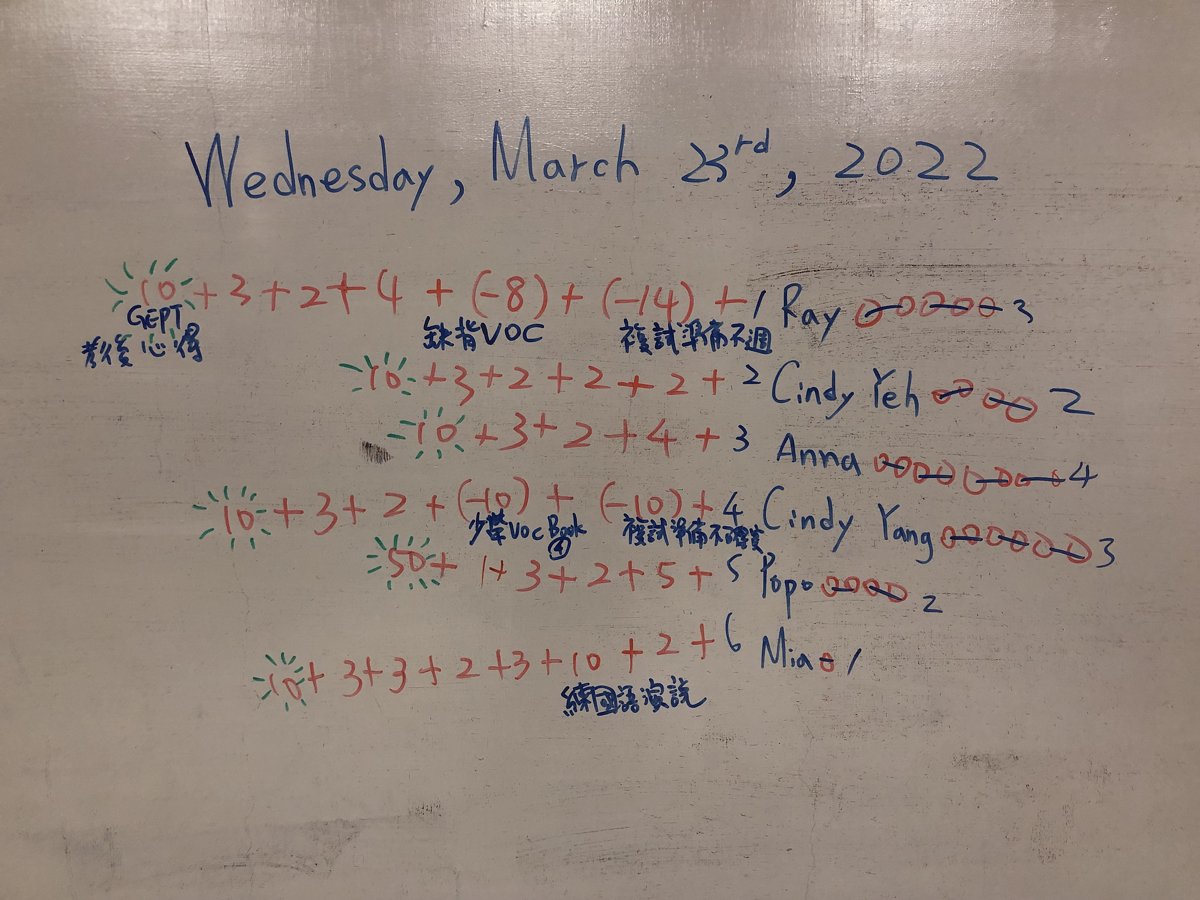 Wednesday, March 23rd, 2022
10 + 3 + 2 + 4 + (-8) + (-14) + 1 Ray 3
GEPT 缺背VOC 複試準備不週
考後心得
10 + 3 + 2 + 2 + 2 + 2 Cindy Yeh 2
10 + 3 + 2 + 4 + 3 Anna 4
10 + 3 + 2 + (-10) + (-10) + 4 Cindy Yang 3
少帶VOC Book 複試準備不
④
50 + 1 + 3 + 2 + 5 + 5 Popo 2
10 + 3 + 3 + 2 + 3 + 10 + 2 + 6 Mia 1
練國語演說